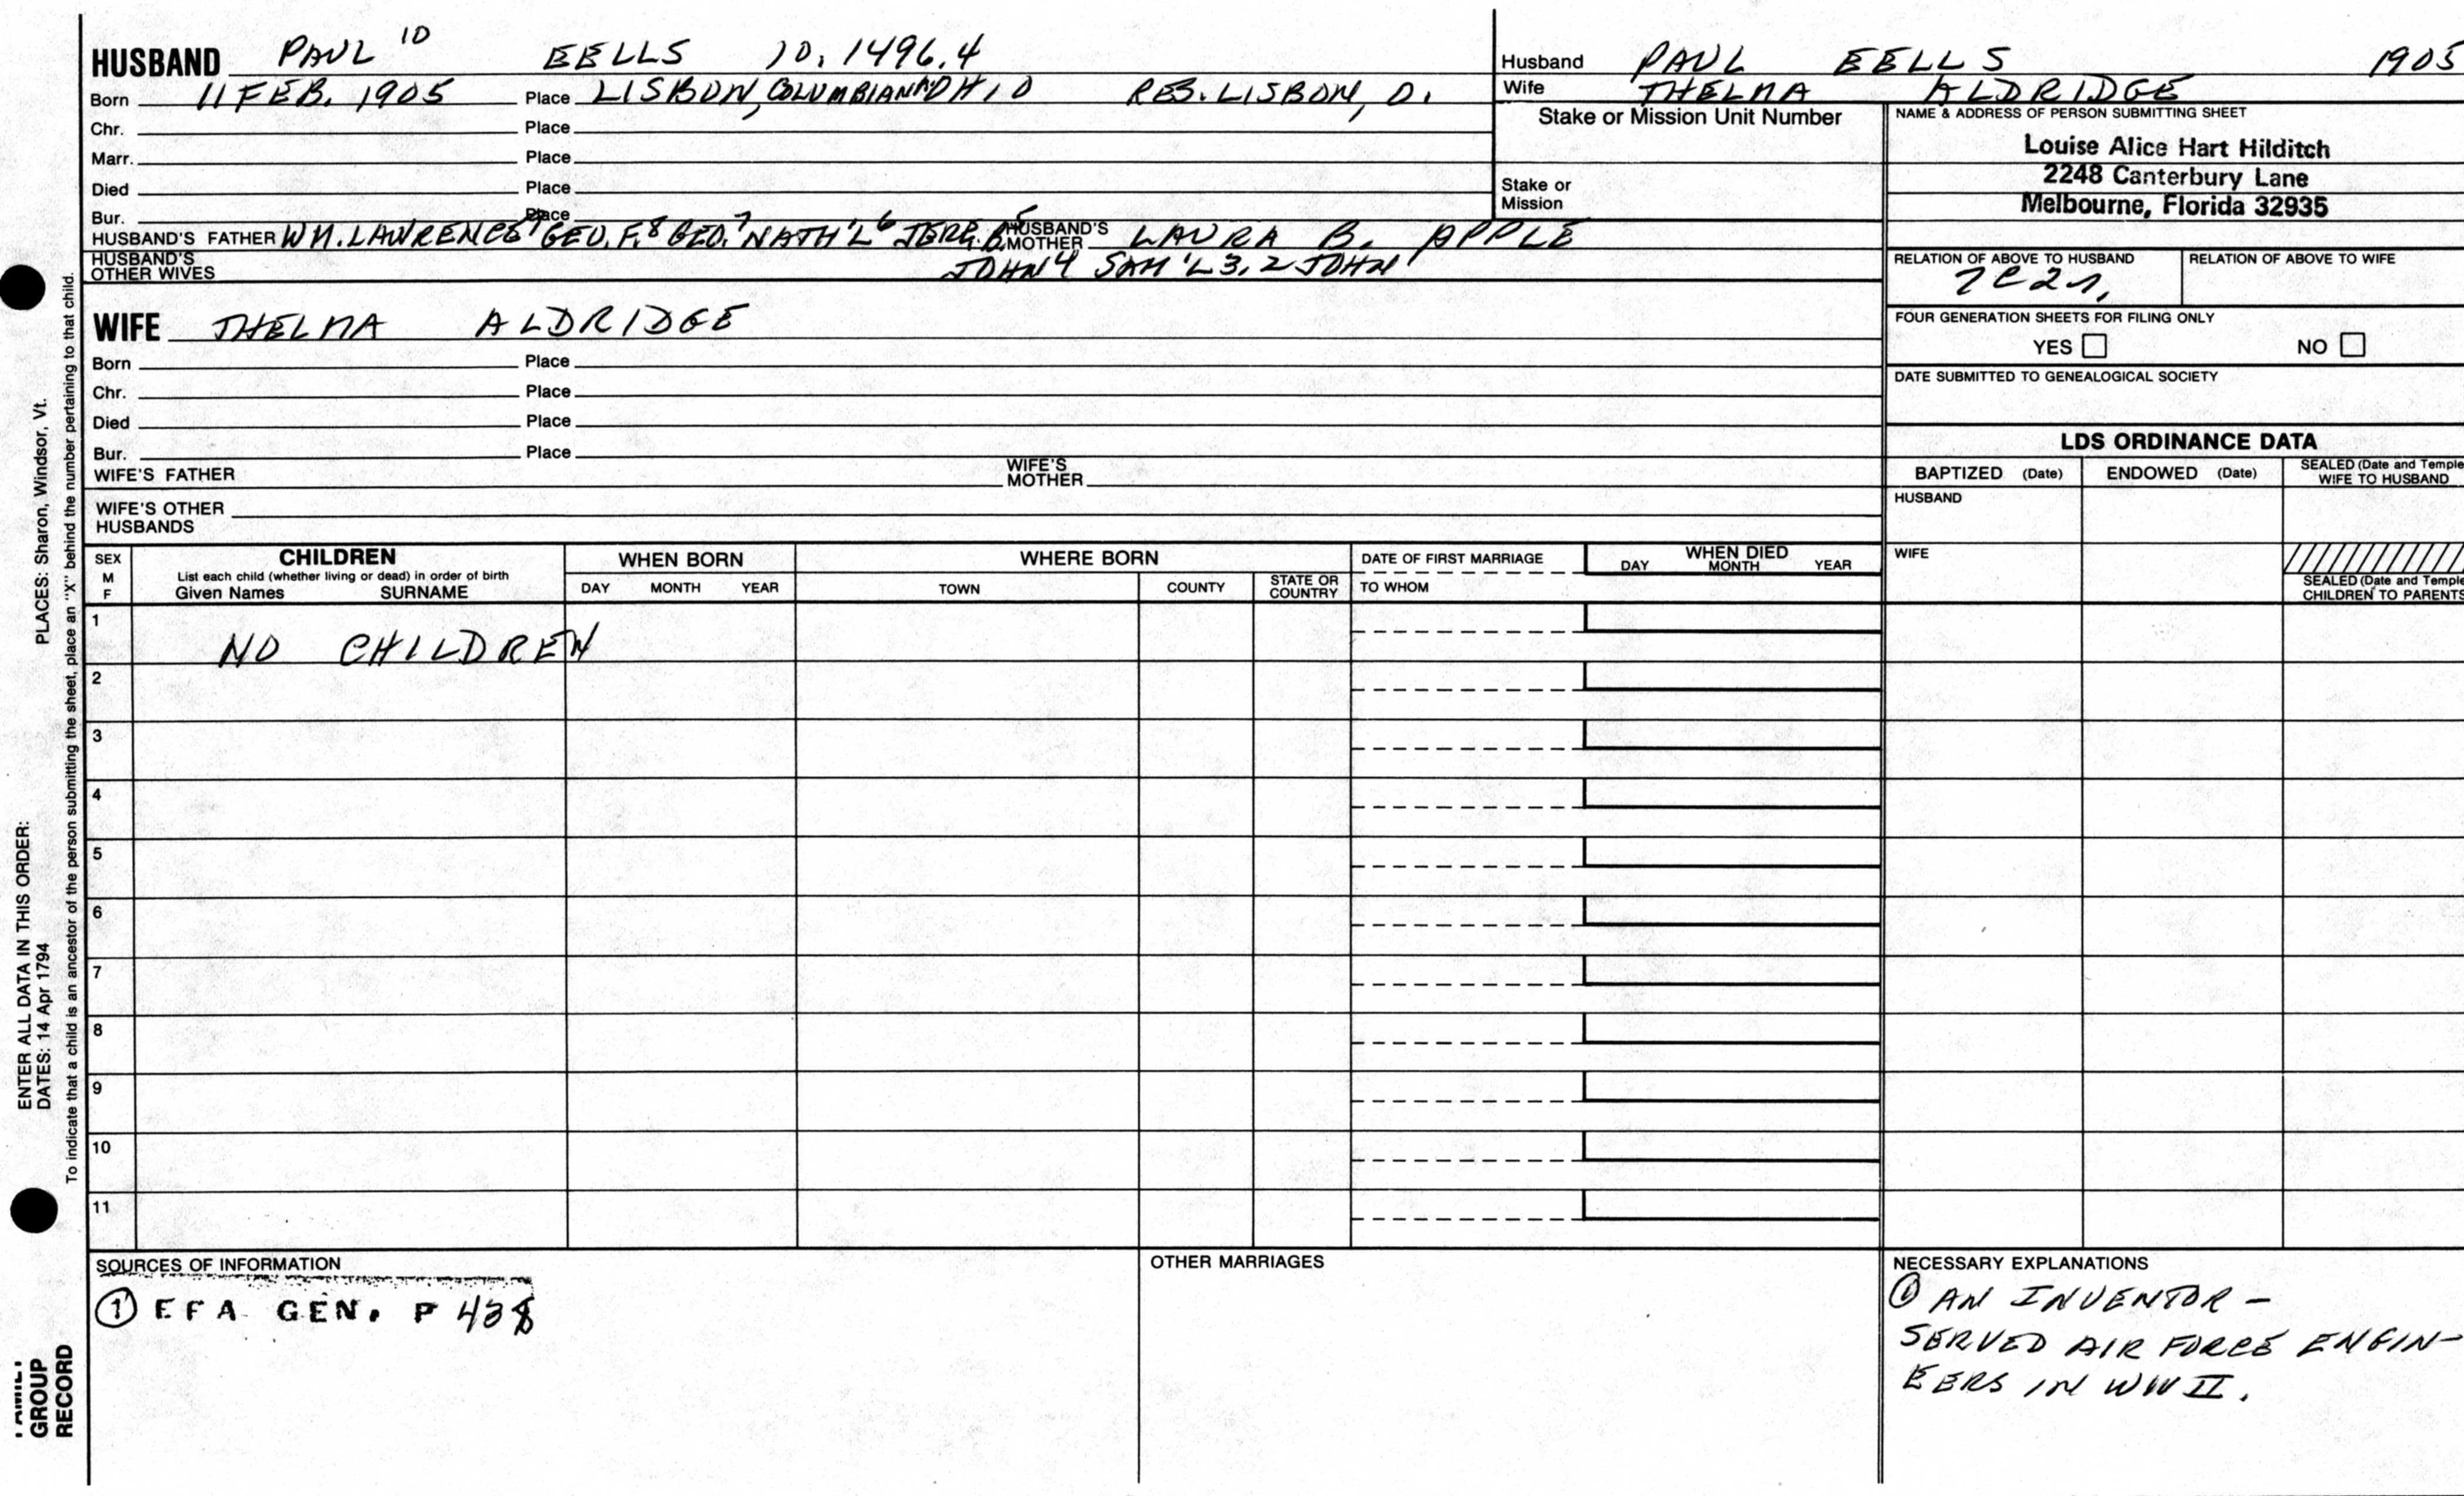 HUSBAND PAUL 10 EELLS 10.1496.4
Born 11 FEB. 1905 Place LISBON, COLUMBIANA OHIO RES. LISBON, O.
Chr. Place
Marr. Place
Died Place
Bur. Place
HUSBAND'S FATHER WM. LAWRENCE 9 GEO. F. 8 GEO. 7 NATH'L 6 JERE. B. 5 HUSBAND'S MOTHER LAURA B. APPLE
HUSBAND'S OTHER WIVES JOHN 4 SAM'L 3, 2 JOHN 1
Husband PAUL EELLS 1905
Wife THELMA ALDRIDGE
Stake or Mission Unit Number
Stake or
Mission
NAME & ADDRESS OF PERSON SUBMITTING SHEET
Louise Alice Hart Hilditch
2248 Canterbury Lane
Melbourne, Florida 32935
RELATION OF ABOVE TO HUSBAND RELATION OF ABOVE TO WIFE
7C2r,
FOUR GENERATION SHEETS FOR FILING ONLY
YES NO
DATE SUBMITTED TO GENEALOGICAL SOCIETY
WIFE THELMA ALDRIDGE
Born Place
Chr. Place
Died Place
Bur. Place
WIFE'S FATHER WIFE'S MOTHER
WIFE'S OTHER
HUSBANDS
LDS ORDINANCE DATA
BAPTIZED (Date) ENDOWED (Date) SEALED (Date and Temple
WIFE TO HUSBAND
HUSBAND
WIFE
SEALED (Date and Temple
CHILDREN TO PARENTS
SEX
M
F
CHILDREN
List each child (whether living or dead) in order of birth
Given Names SURNAME
WHEN BORN
DAY MONTH YEAR
WHERE BORN
TOWN COUNTY STATE OR COUNTRY
DATE OF FIRST MARRIAGE
TO WHOM
WHEN DIED
DAY MONTH YEAR
1
NO CHILDREN
2
3
4
5
6
7
8
9
10
11
SOURCES OF INFORMATION
1 EFA GEN. P 438
OTHER MARRIAGES
NECESSARY EXPLANATIONS
1 AN INVENTOR –
SERVED AIR FORCE ENGIN-
EERS IN WW II.
ENTER ALL DATA IN THIS ORDER:
DATES: 14 Apr 1794 PLACES: Sharon, Windsor, Vt.
To indicate that a child is an ancestor of the person submitting the sheet, place an "X" behind the number pertaining to that child.
GROUP
RECORD